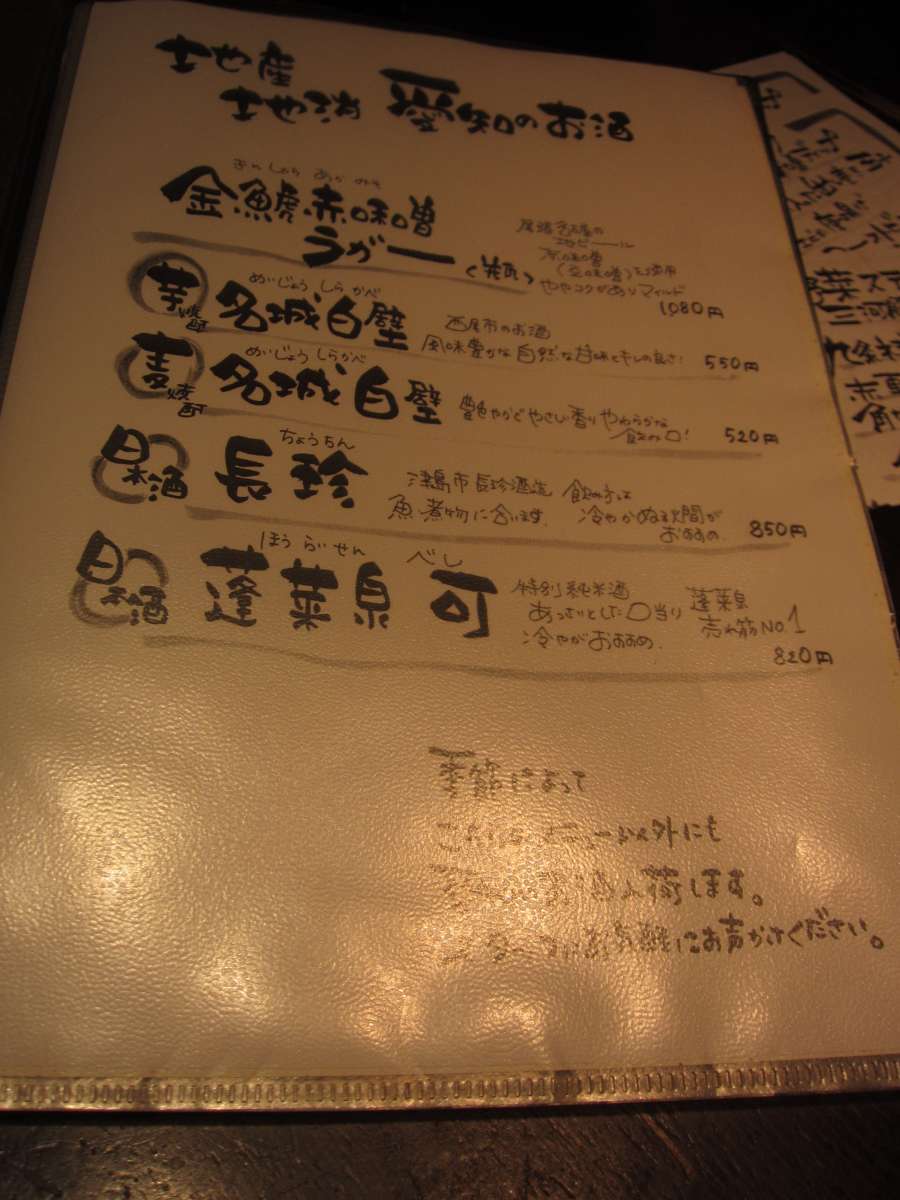 地産
地消 愛知のお酒
きんしゃち あか みそ
金鯱赤味噌
ラガー
尾張名古屋の
地ビール
赤味噌
(豆味噌)を使用
ややコクがありマイルド
1080円
芋焼酎
めいじょう しらかべ
名城白壁
西尾市のお酒
風味豊かな自然な甘味とキレの良さ!
550円
麦焼酎
めいじょう しらかべ
名城白壁
やさしい香り やわらかな
飲み口!
520円
日本酒
ちょうちん
長珍
津島市長珍酒造
魚・煮物に合います。
飲み方は
冷やかぬる燗が
おすすめ
850円
日本酒
ほうらいせん べし
蓬莱泉 可
特別純米酒
あっさりとした口当り
冷やがおすすめ
蓬莱泉
売れ筋NO.1
820円
季節によって
メニュー以外にも
お酒入荷します。
お気軽にお声かけください。